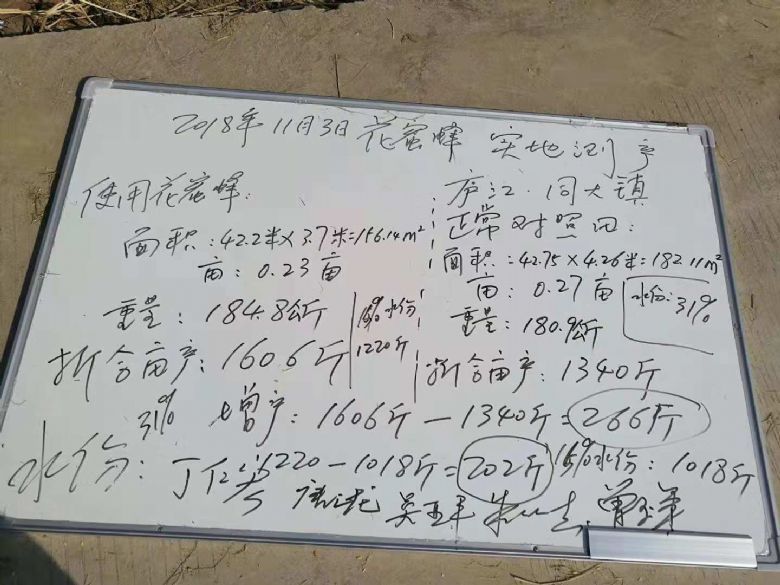 2018年11月3日花蜜蜂 实地测产
使用花蜜蜂:
面积:42.2米×3.7米=156.14m²
亩:0.23亩
重量:184.8公斤
折合亩产:1606斤
水份
1220斤
庐江·同大镇
正常对照田:
面积:42.75×4.26米=182.11m²
亩:0.27亩
水份:31%
重量:180.9公斤
折合亩产:1340斤
31% 增产:1606斤-1340斤=266斤
水份: 1220-1018斤=202斤 15%水份:1018斤